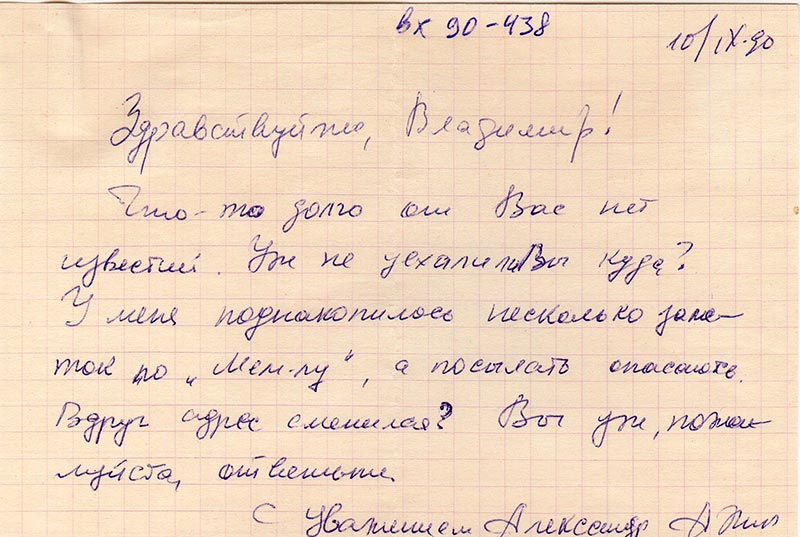 вх 90-438
10/IX-90
Здравствуйте, Владимир!
Что-то долго от Вас нет
известий. Уж не уехали ли Вы куда?
У меня поднакопилось несколько заме-
ток по „Мем-лу", а посылать опасаюсь.
Вдруг адрес сменился? Вы уж, пожа-
луйста, ответьте.
С уважением Александр